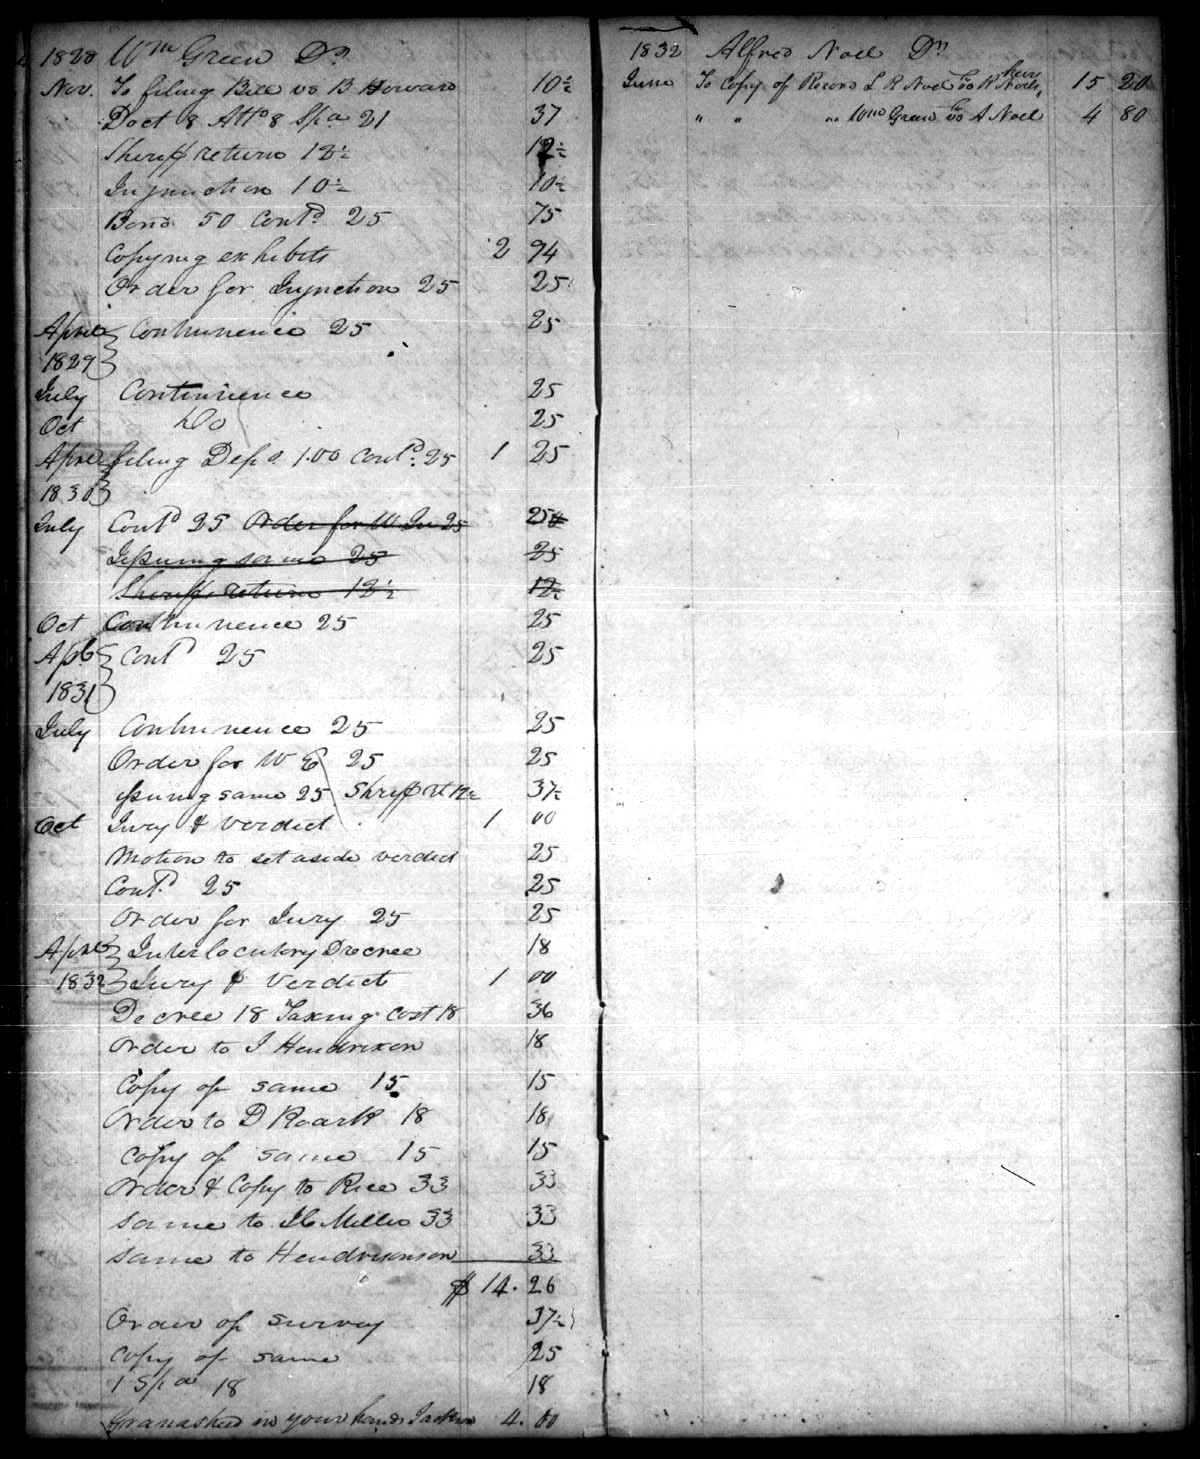 1828 Wm Green Dr
Nov. To filing Bill vs B Howard 10½
Doct 8 Atto 8 Spa 21 37
Sheriff return 12½ 12½
Injunction 10½ 10½
Bond 50 Contd 25 75
Copying exhibits 2 94
Order for Injnction 25 25
April Continuence 25 25
1829
July Continuence 25
Oct Do 25
April filing Depo 1.00 Contd. 25 1 25
1830
July Contd 25 Order for W In 25 25
Issuing same 25 25
Sheriff return 12½ 12½
Oct Continuence 25 25
Apl Contd 25 25
1831
July Continuence 25 25
Order for W E 25 25
issuing same 25 Sheriff rt 12½ 37½
Oct Jury & Verdict 1 00
Motion to set aside verdict 25
Contd. 25 25
Order for Jury 25 25
April Interlocutory Decree 18
1832 Jury & Verdict 1 00
Decree 18 Taxing Cost 18 36
Order to J Hendrixon 18
Copy of same 15 15
Order to D Roark 18 18
Copy of same 15 15
Order & Copy to Rice 33 33
same to Miller 33 33
same to Hendrixonson 33
$ 14. 26
Order of survey 37½
Copy of same 25
1 Spa 18 18
Granashed in your hands Jackson 4. 00
1832 Alfred Noel Dr
June To Copy of Record L R Noel vs R Noels heirs 15 20
" " " Wm Green vs A Noel 4 80